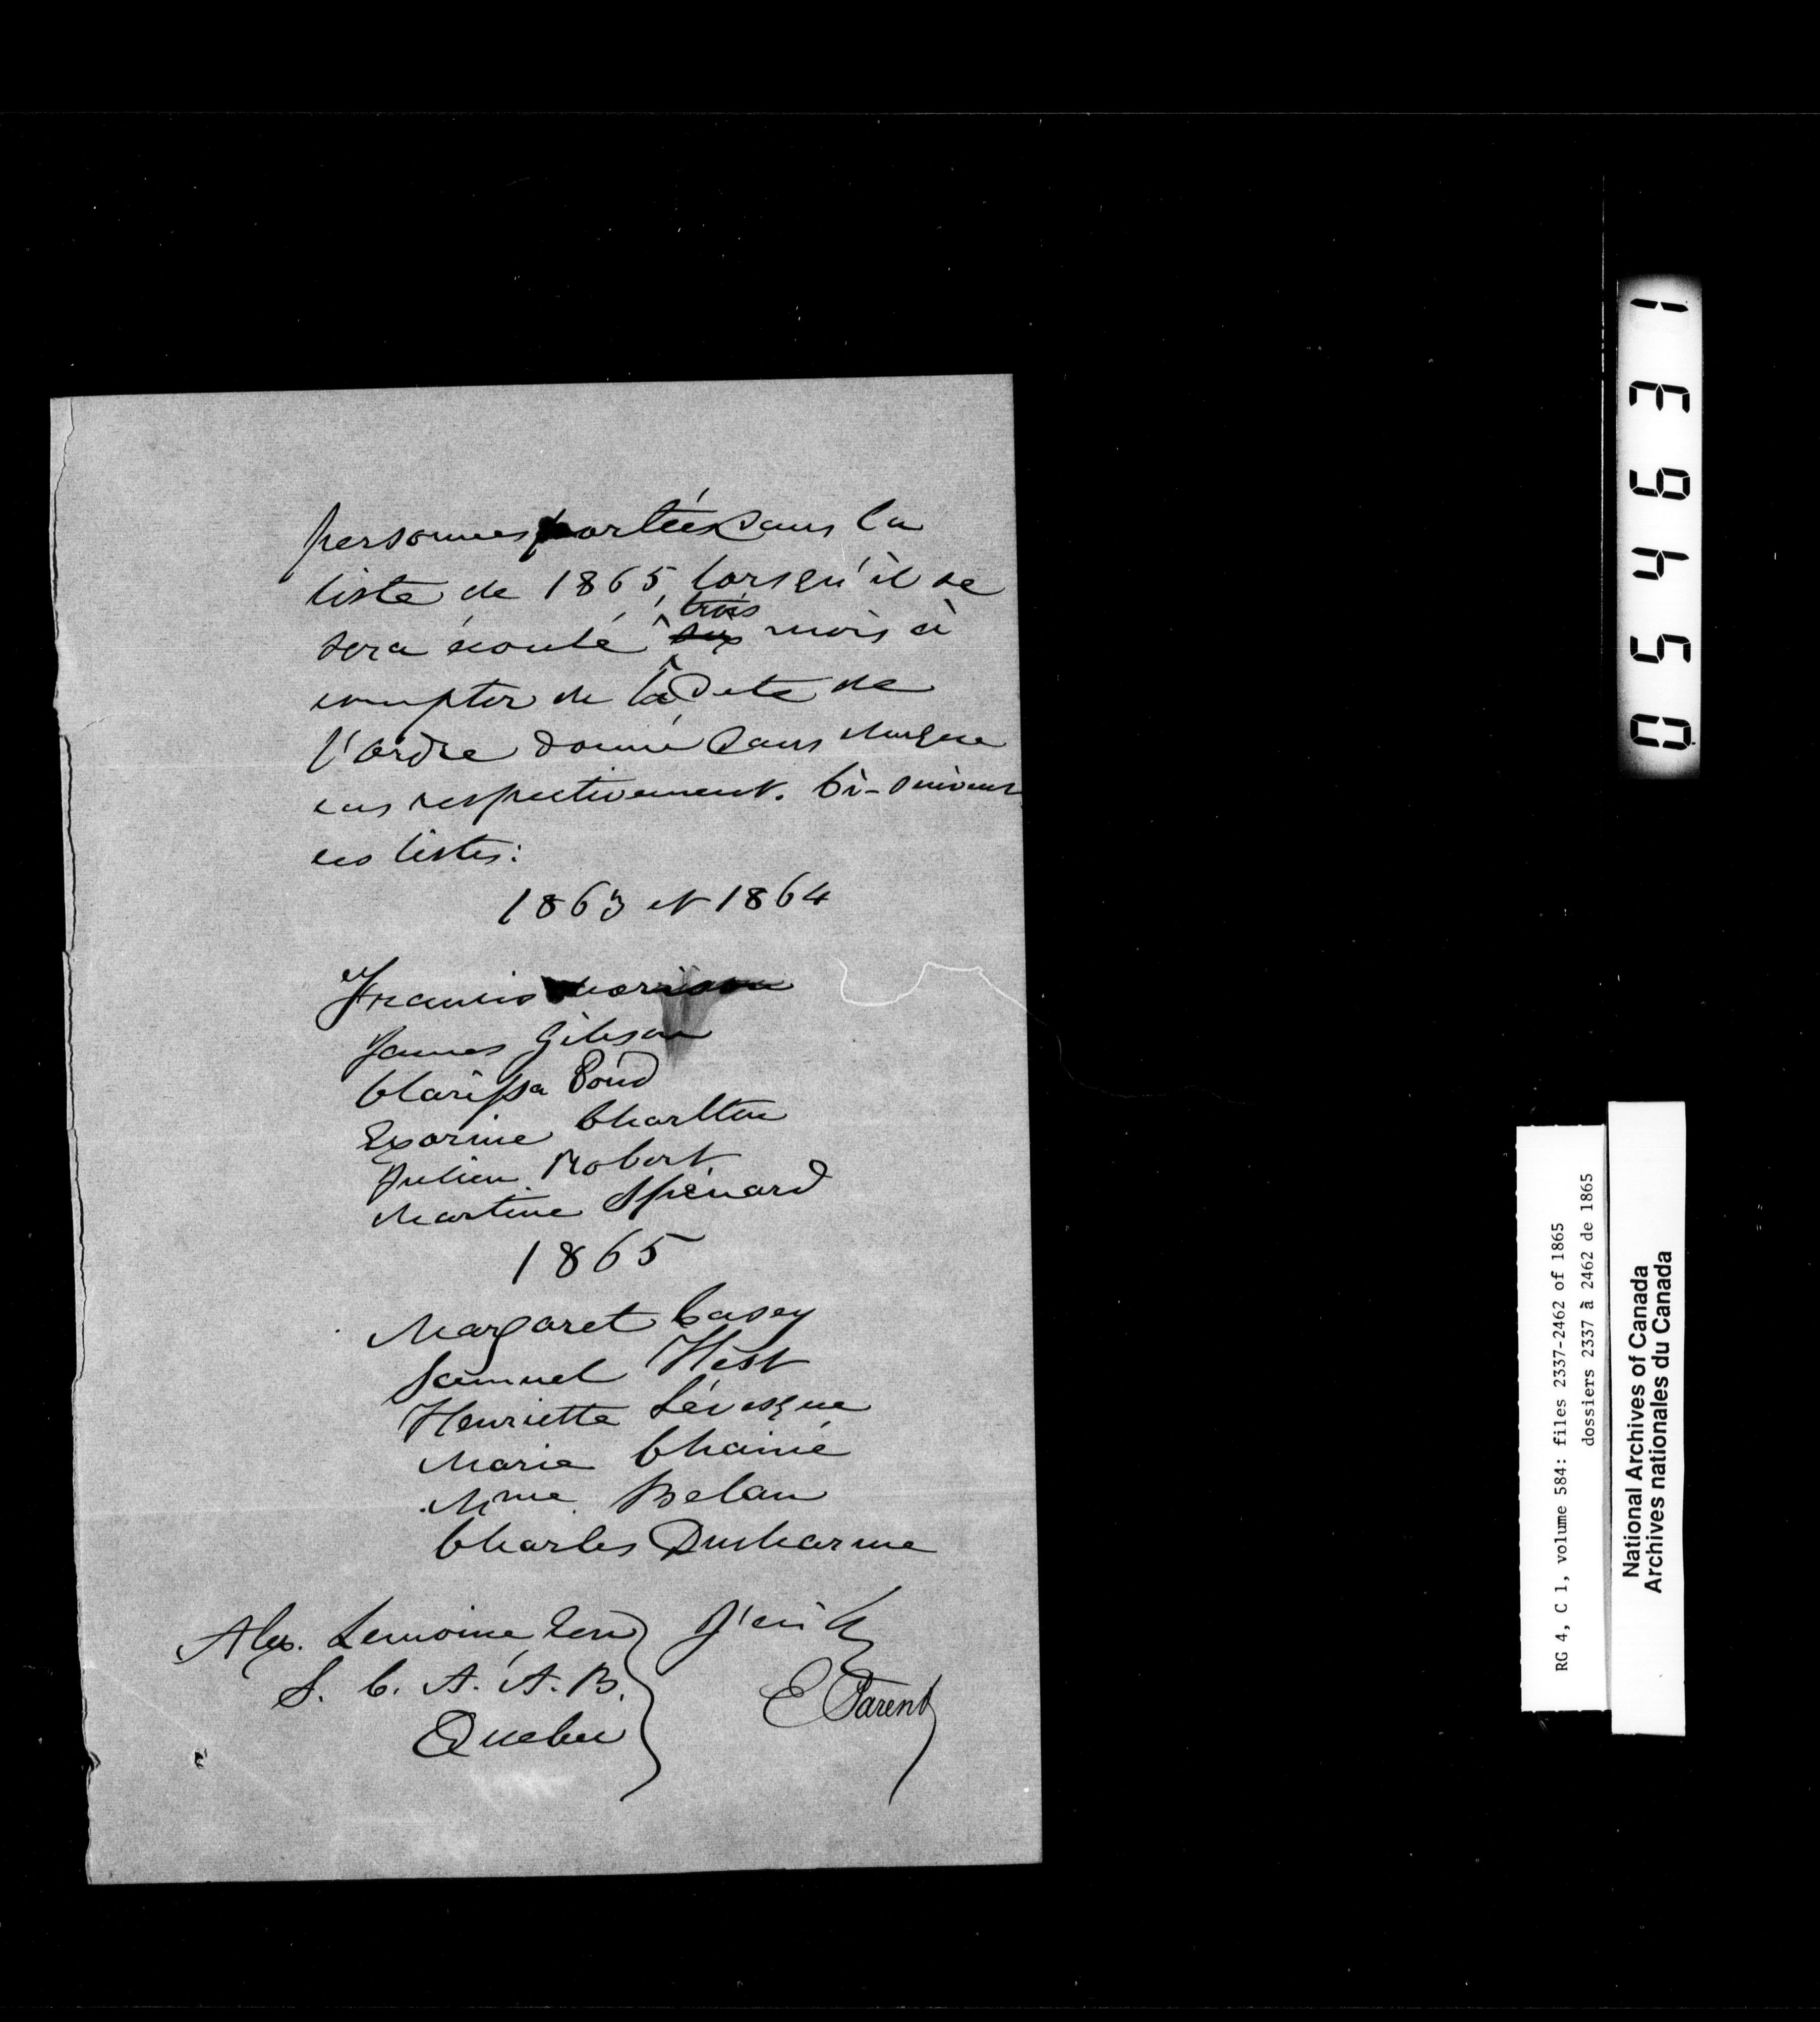 personnes portées dans la
liste de 1865, lorsqu'il se
sera écoulé trois six mois à
compter de la date de
l'ordre donné dans chaque
cas respectivement. Ci-suivent
ces listes:
1863 et 1864
Francis Morrison
James Gibson
Clarissa Bond
Exorine Charlton
Julien Robert
Martine Spénard
1865
Margaret Casey
Samuel West
Henriette Lévesque
Marie Chainé
Mme Belan
Charles Ducharme
Alex. Lemoine Ecr
S. C. A. A. B.
Quebec
J'ai &
E Parent
054631
RG 4, C 1, volume 584: files 2337-2462 of 1865
dossiers 2337 à 2462 de 1865
National Archives of Canada
Archives nationales du Canada